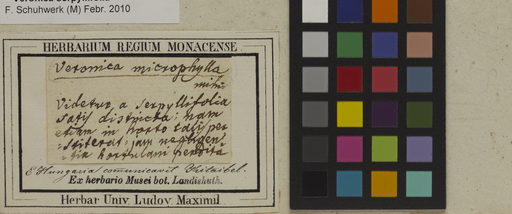 F. Schuhwerk (M) Febr. 2010
HERBARIUM REGIUM MONACENSE
Veronica microphylla
mihi
Videtur a Serpyllifolia
satis districta: nam
etiam in horto culij per
stiterat: jam negligen
tia hortulani perdita
E Hungaria communicavit Kitaibel.
Ex herbario Musei bot. Landishuth.
Herbar Univ. Ludov. Maximil.